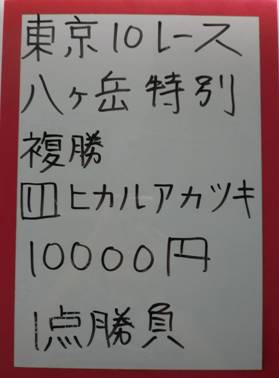 東京10レース
八ヶ岳特別
複勝
11ヒカルアカツキ
10000円
1点勝負